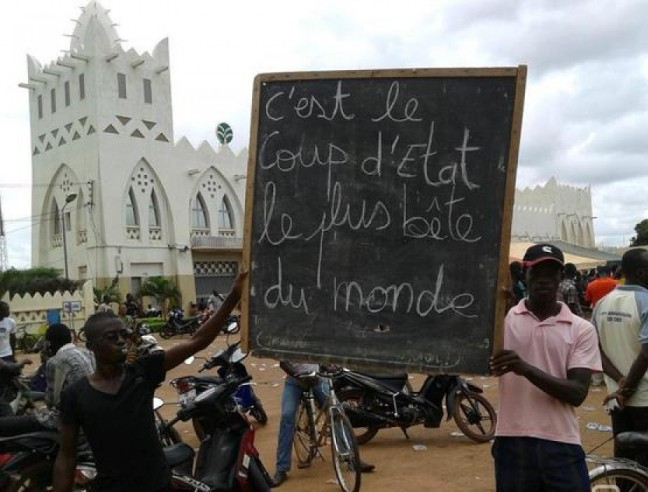 c'est le
Coup d'Etat
le plus bête
du monde